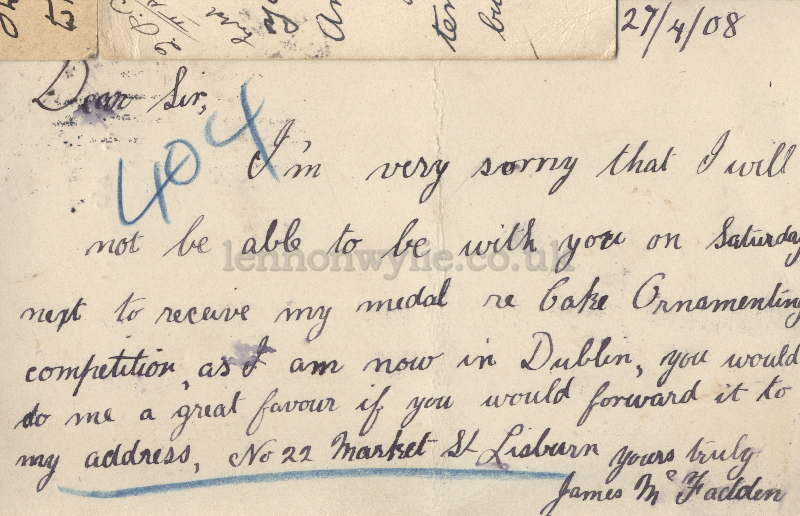 27/4/08
Dear Sir,
404
I'm very sorry that I will
not be able to be with you on Saturday
lennonwylie.co.uk
next to receive my medal re Cake Ornamenting
competition, as I am now in Dublin, you would
do me a great favour if you would forward it to
my address, No 22 Market St Lisburn
yours truly
James McFadden